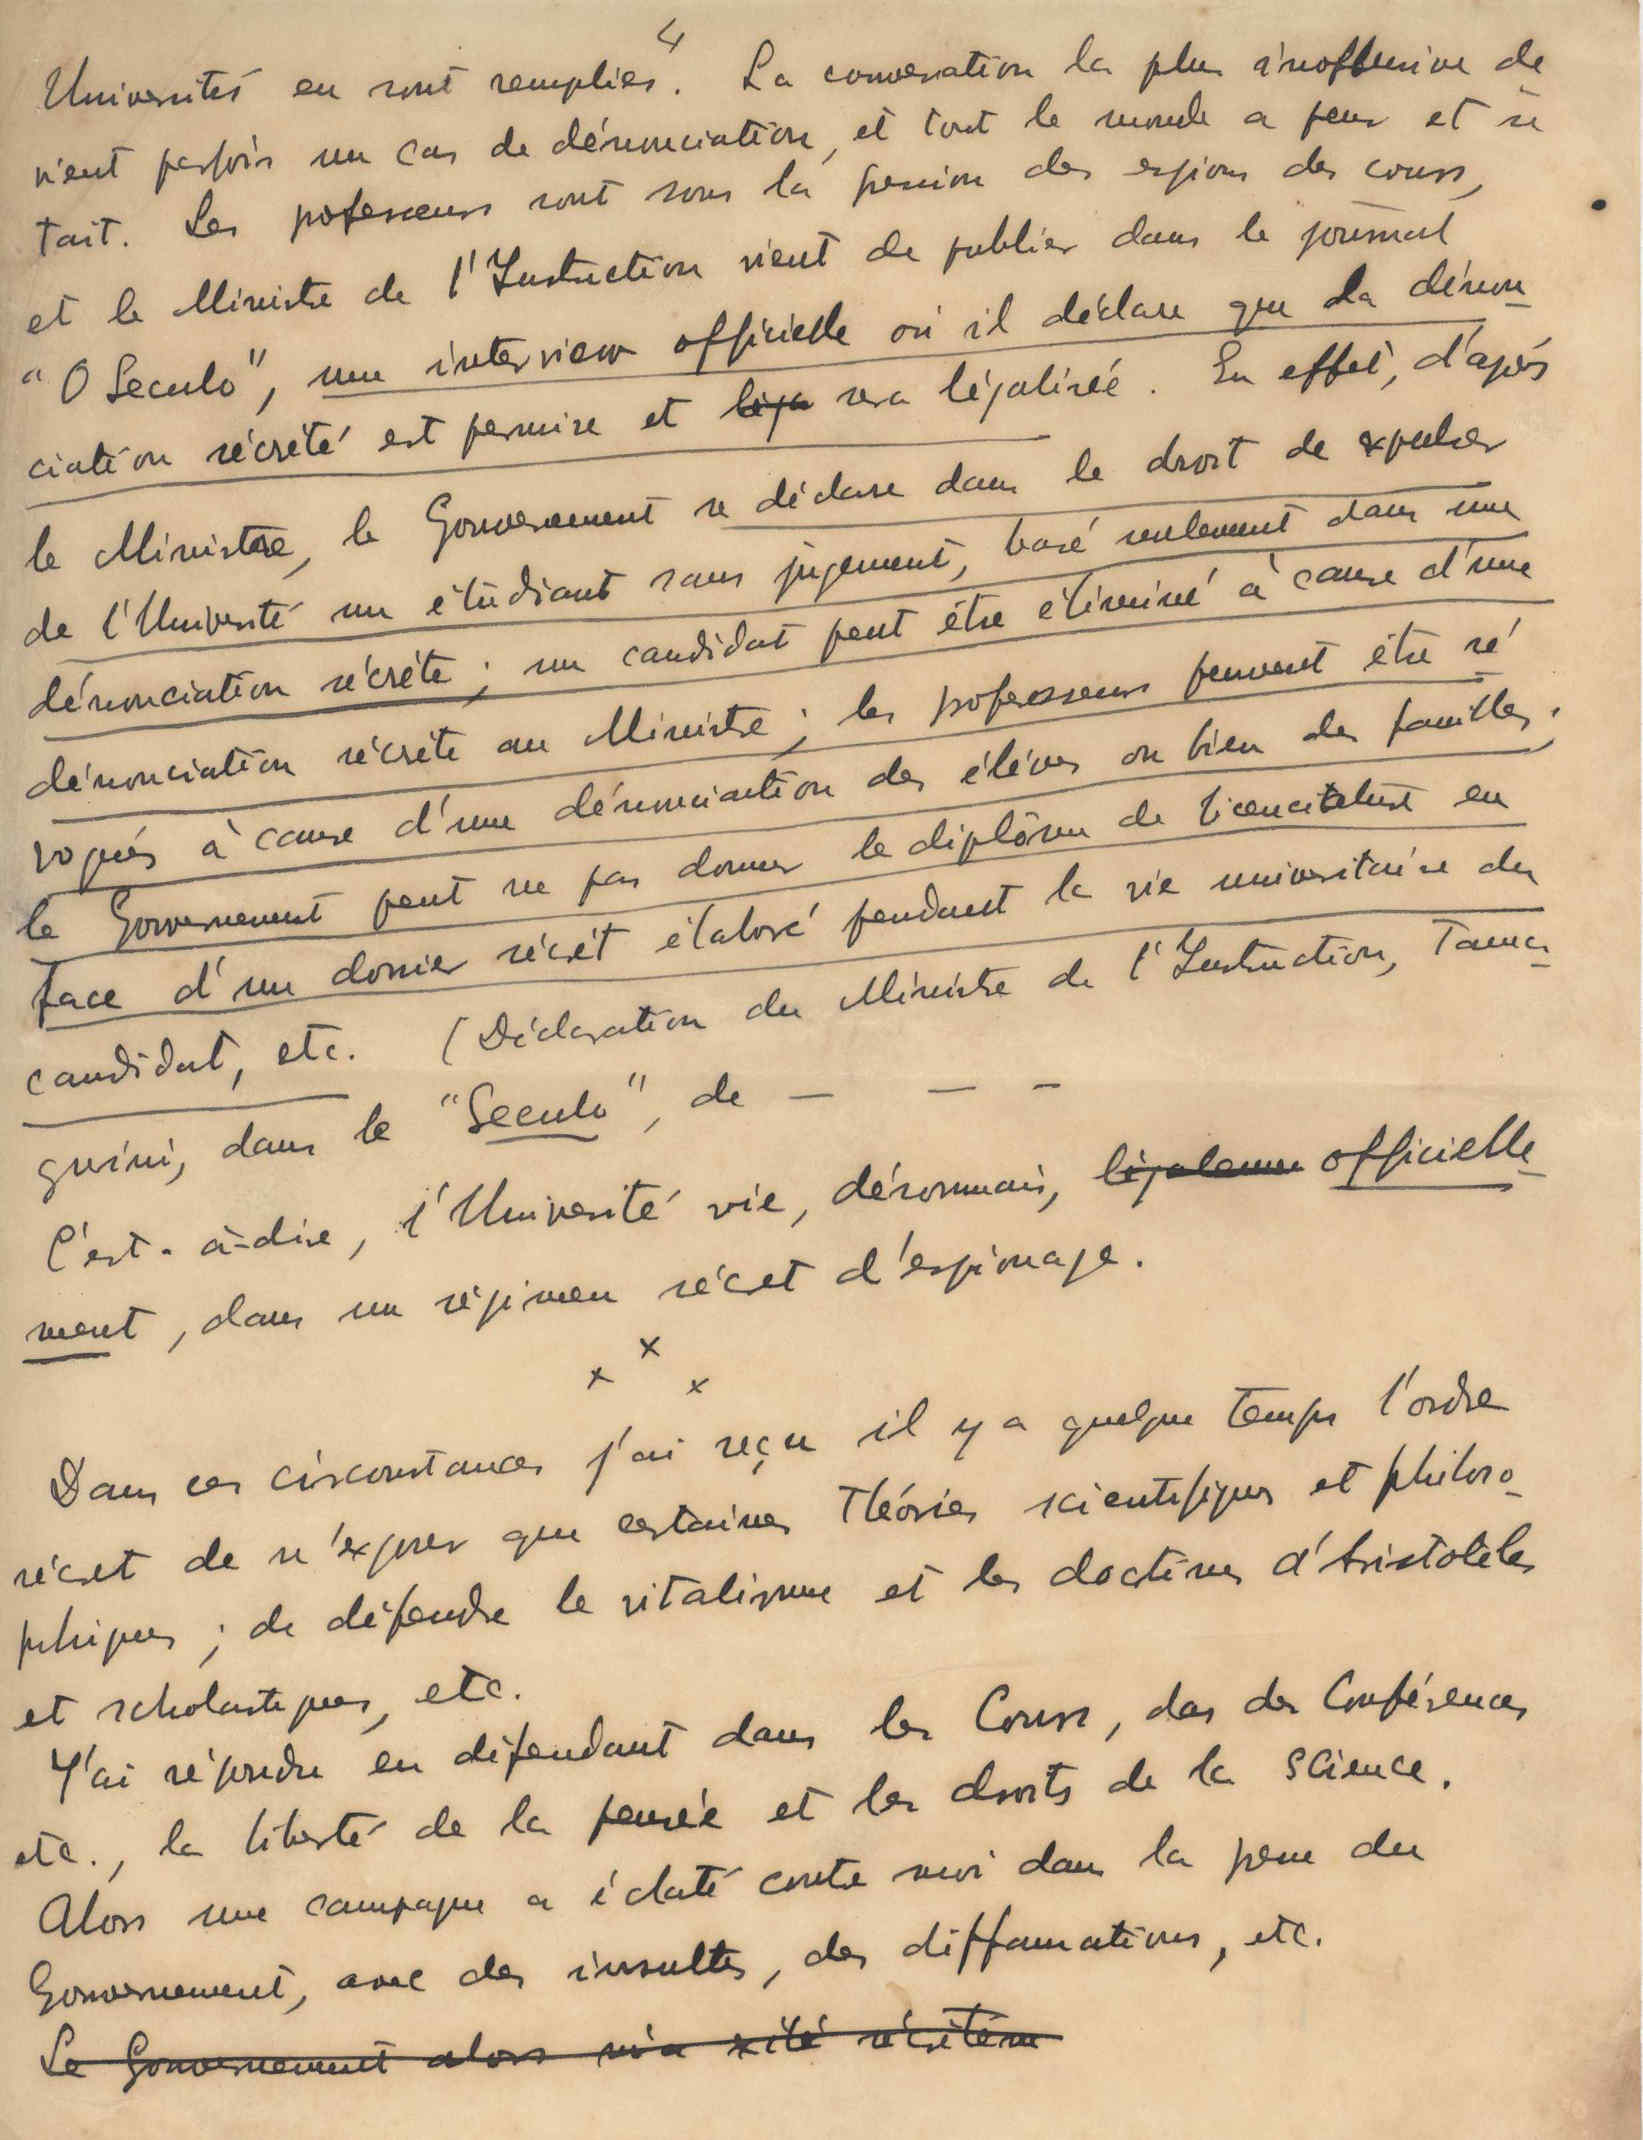 4
Universités en sont remplies. La conversation la plus inoffensive de
vient parfois un cas de dénonciation, et tout le monde a peur et se
tait. Les professeurs sont sous la pression des espions des cours,
et le Ministre de l'Instruction vient de publier dans le journal
"O Seculo", une interview officielle où il déclare que la dénon-
ciation sécrète est permise et léga sera légalisée. En effet, d'après
le Ministre, le Gouvernement se déclare dans le droit de expulser
de l'Université un étudiant sans jugement, basé seulement dans une
dénonciation sécrète; un candidat peut être éliminé à cause d'une
dénonciation sécrète au Ministre; les professeurs peuvent être ré-
voqués à cause d'une dénonciation des élèves ou bien des familles;
le Gouvernement peut ne pas donner le diplôme de licenciature en
face d'un dossier sécrét élaboré pendant la vie universitaire du
candidat, etc. (Déclaration du Ministre de l'Instruction, Tama-
gnini, dans le "Seculo", de — — —
C'est-à-dire, l'Université vie, désormais, légalemen officielle-
ment, dans un régimen sécret d'espionage.
x x x
Dans ces circonstances j'ai reçu il y a quelque temps l'ordre
sécret de n'exposer que certaines théories scientifiques et philoso-
phiques; de défendre le vitalisme et les doctrines d'Aristoteles
et scholastiques, etc.
J'ai répondu en défendant dans les Cours, das des Conférences
etc., la liberté de la pensée et les droits de la Science.
Alors une campagne a éclaté contre moi dans la presse du
Gouvernement, avec des insultes, des diffamations, etc.
Le Gouvernement alors m'a exilé sécrètem